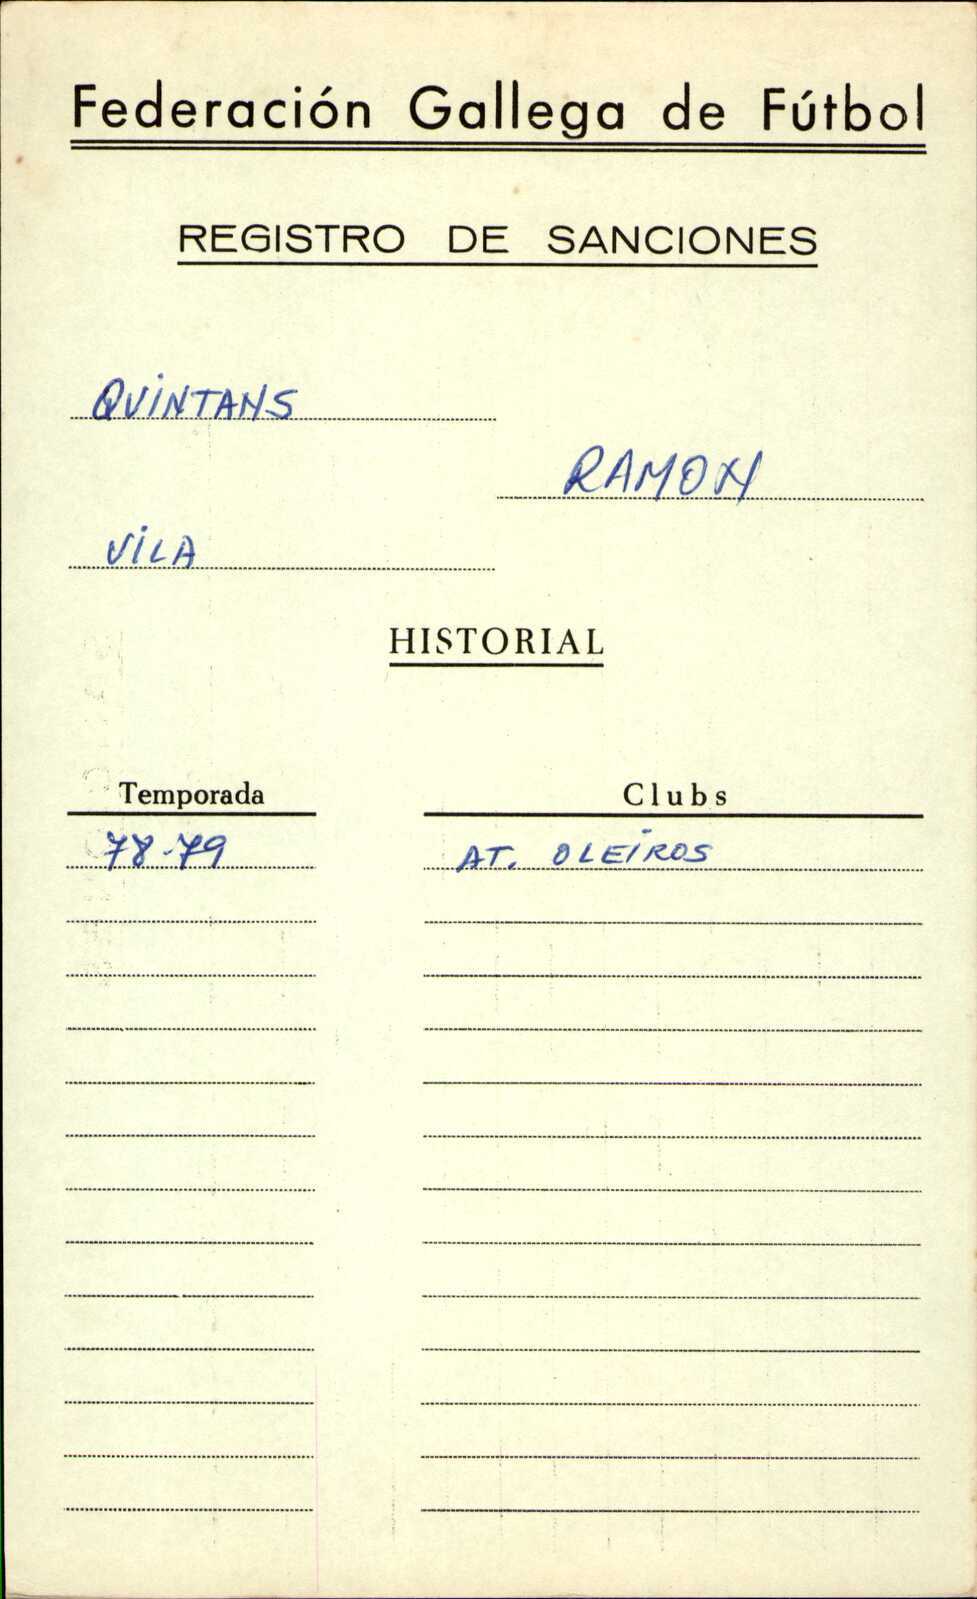 Federación Gallega de Fútbol
REGISTRO DE SANCIONES
QUINTANS
RAMON
VILA
HISTORIAL
Temporada Clubs
78-79 AT. OLEIROS